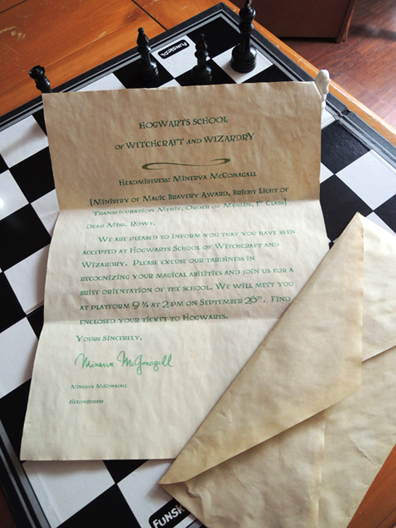 FUNSKOOL
HOGWARTS SCHOOL
OF WITCHCRAFT AND WIZARDRY
HEADMISTRESS: MINERVA MCGONAGALL
[MINISTRY OF MAGIC BRAVERY AWARD, BRIGHT LIGHT OF
TRANSFIGURATION MERIT, ORDER OF MERLIN, 1ST CLASS]
DEAR MISS. ROWY,
WE ARE PLEASED TO INFORM YOU THAT YOU HAVE BEEN
ACCEPTED AT HOGWARTS SCHOOL OF WITCHCRAFT AND
WIZARDRY. PLEASE EXCUSE OUR TARDINESS IN
RECOGNIZING YOUR MAGICAL ABILITIES AND JOIN US FOR A
BRIEF ORIENTATION OF THE SCHOOL. WE WILL MEET YOU
AT PLATFORM 9 ¾ AT 2 PM ON SEPTEMBER TH. FIND
ENCLOSED YOUR TICKET TO HOGWARTS.
YOURS SINCERELY,
Minerva McGonagall
MINERVA MCGONAGALL
HEADMISTRESS
FUNSK